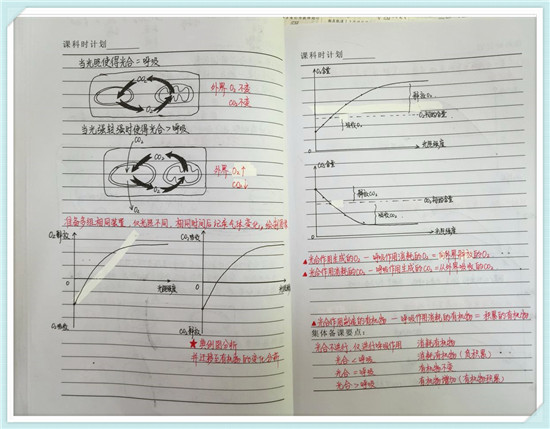 课科时计划
当光照使得光合=呼吸
CO₂
O₂
外界 O₂不变
CO₂不变
当光强较强时使得光合>呼吸
CO₂
CO₂
O₂
O₂
外界 O₂↑
CO₂↓
准备多组相同装置,仅光照不同,相同时间后记录气体变化,绘制图像
O₂释放
光照强度
O₂吸收
CO₂吸收
CO₂释放
★典例图分析
并迁移至有机物的变化分析
课科时计划
O₂含量
释放O₂
O₂初始含量
吸收O₂
光照强度
CO₂含量
释放CO₂
CO₂初始含量
吸收CO₂
光照强度
▲光合作用生成的O₂-呼吸作用消耗的O₂=向外界释放的O₂
▲光合作用消耗的CO₂-呼吸作用生成的CO₂=从外界吸收的CO₂
▲光合作用制造的有机物-呼吸作用消耗的有机物=积累的有机物
集体备课要点:
光合不进行,仅进行呼吸作用 消耗有机物
光合<呼吸 消耗有机物(负积累)
光合=呼吸 有机物不变
光合>呼吸 有机物增加(有机物积累)